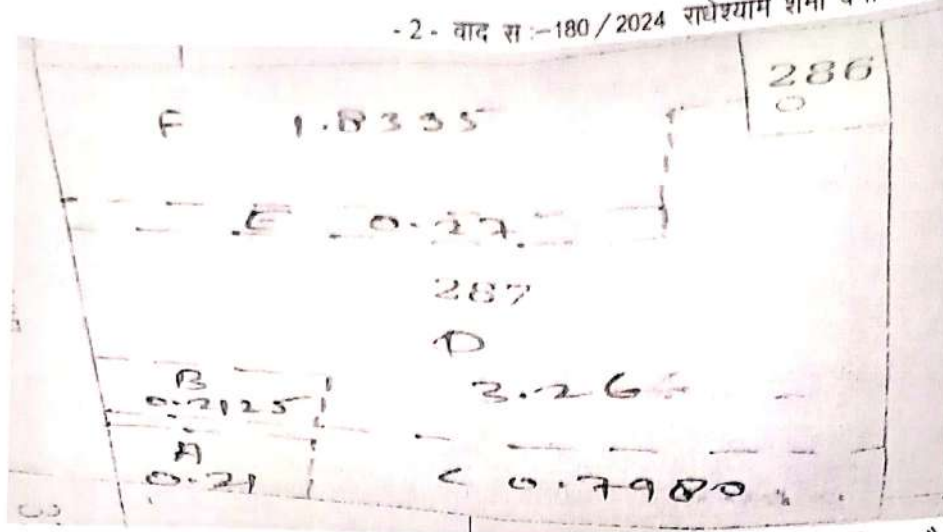 -2- वाद स:-180/2024 राधेश्याम शर्मा
286
F 1.8335
E 0.27
287
D
3.26
B
0.2125
A
0.21
C 0.7980